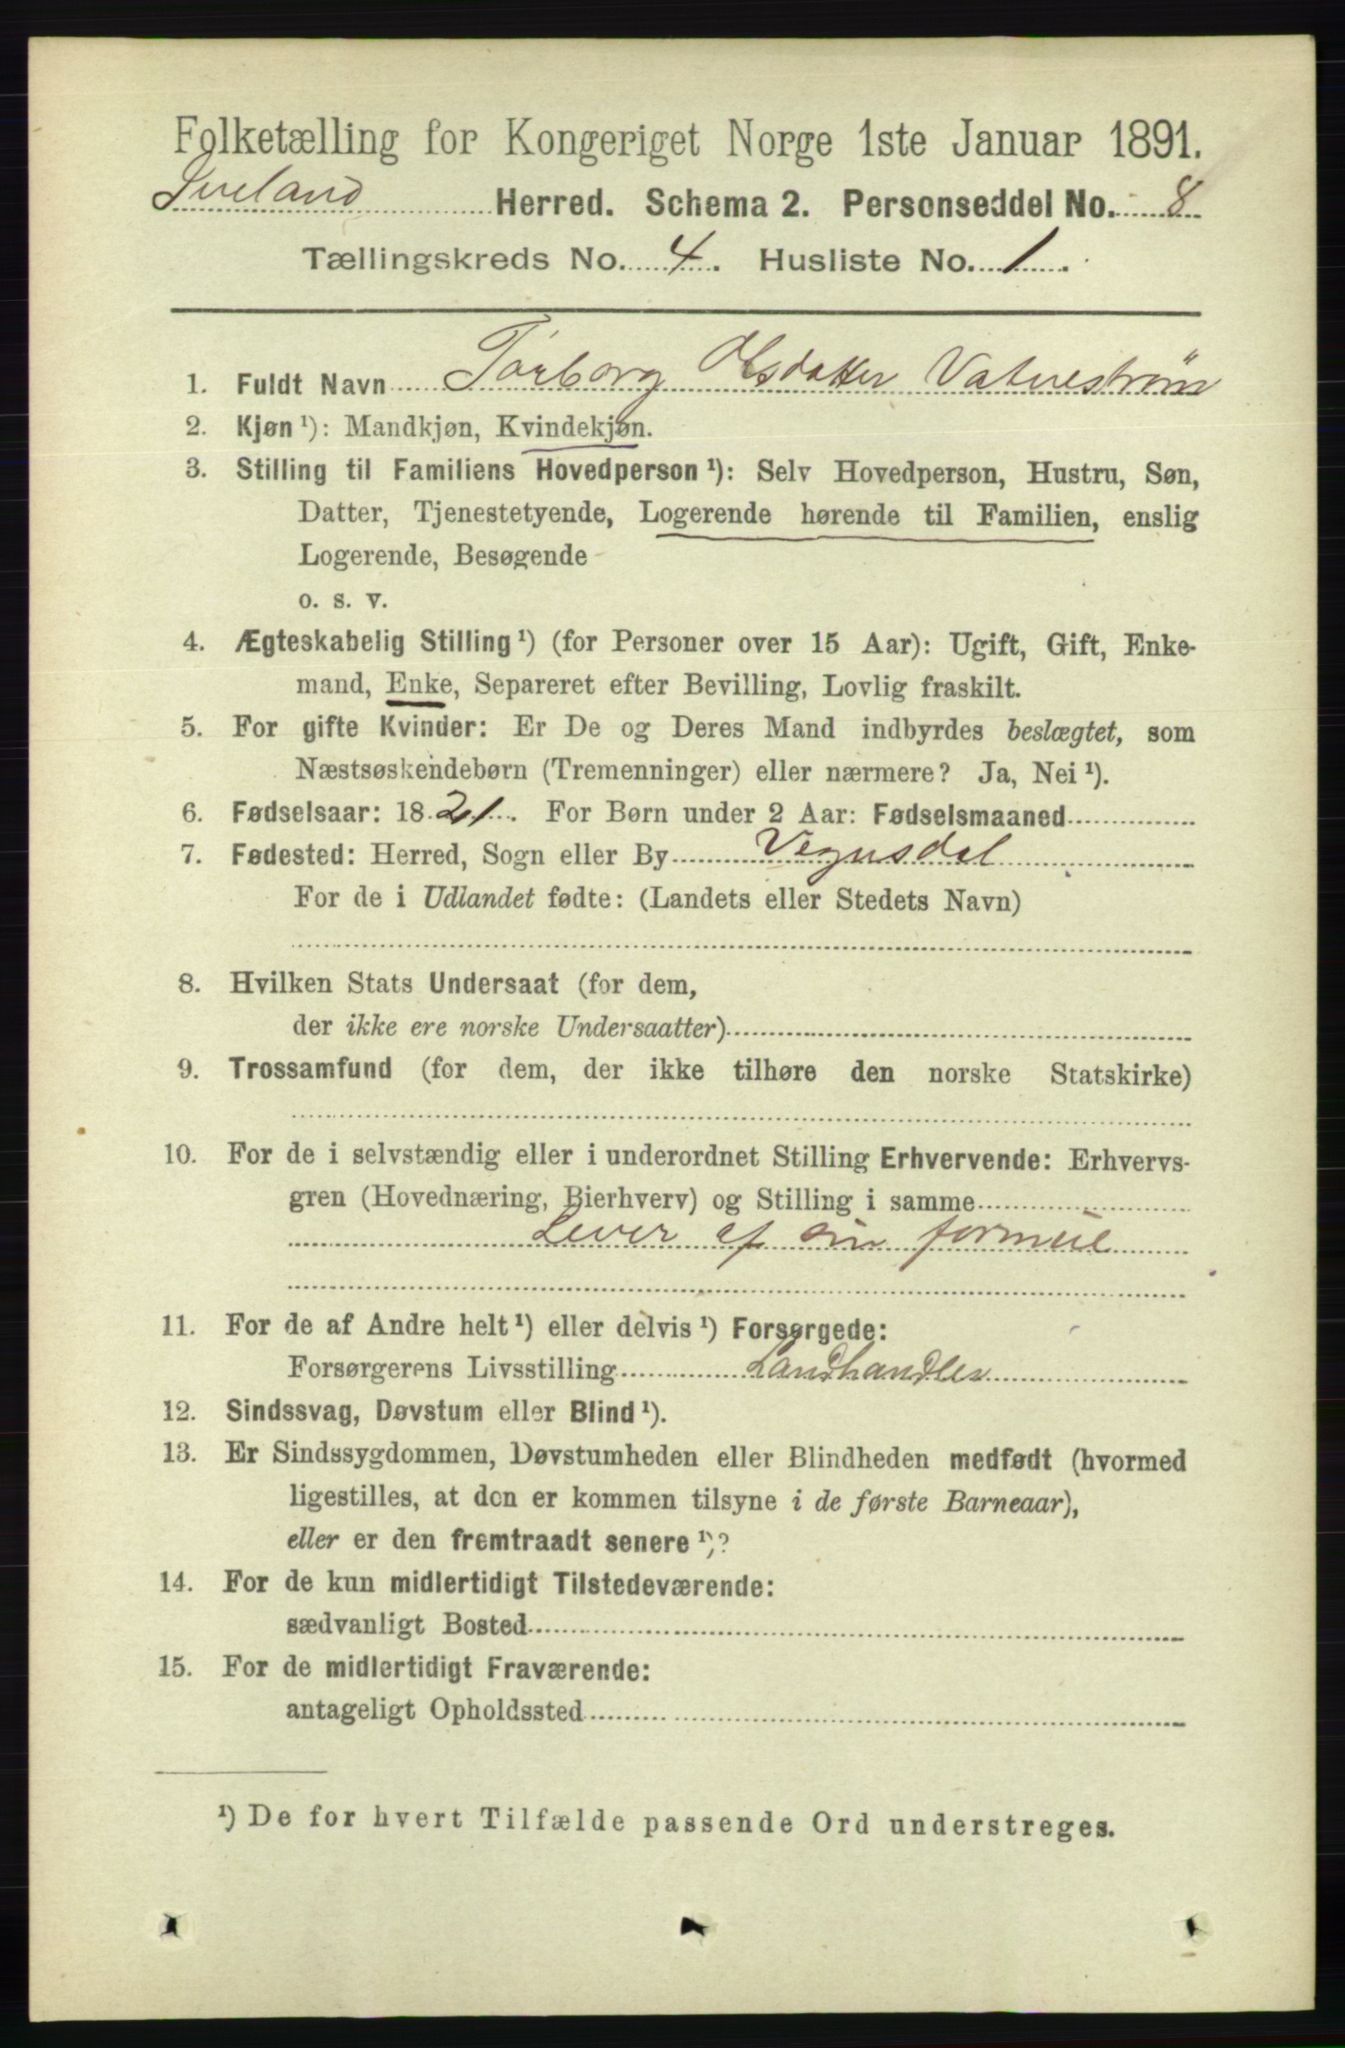 Folketælling for Kongeriget Norge 1ste Januar 1891.
Iveland Herred. Schema 2. Personseddel No. 8
Tællingskreds No. 4. Husliste No. 1.
1. Fuldt Navn Torborg Olsdatter Vatnestrøm
2. Kjøn ¹): Mandkjøn, Kvindekjøn.
3. Stilling til Familiens Hovedperson ¹): Selv Hovedperson, Hustru, Søn,
Datter, Tjenestetyende, Logerende hørende til Familien, enslig
Logerende, Besøgende
o. s. v.
4. Ægteskabelig Stilling ¹) (for Personer over 15 Aar): Ugift, Gift, Enke-
mand, Enke, Separeret efter Bevilling, Lovlig fraskilt.
5. For gifte Kvinder: Er De og Deres Mand indbyrdes beslægtet, som
Næstsøskendebørn (Tremenninger) eller nærmere? Ja, Nei ¹).
6. Fødselsaar: 1821. For Børn under 2 Aar: Fødselsmaaned
7. Fødested: Herred, Sogn eller By Vegusdal
For de i Udlandet fødte: (Landets eller Stedets Navn)
8. Hvilken Stats Undersaat (for dem,
der ikke ere norske Undersaatter)
9. Trossamfund (for dem, der ikke tilhøre den norske Statskirke)
10. For de i selvstændig eller i underordnet Stilling Erhvervende: Erhvervs-
gren (Hovednæring, Bierhverv) og Stilling i samme
Lever af sin formue
11. For de af Andre helt ¹) eller delvis ¹) Forsørgede:
Forsørgerens Livsstilling Landhandler
12. Sindssvag, Døvstum eller Blind ¹).
13. Er Sindssygdommen, Døvstumheden eller Blindheden medfødt (hvormed
ligestilles, at den er kommen tilsyne i de første Barneaar),
eller er den fremtraadt senere ¹)?
14. For de kun midlertidigt Tilstedeværende:
sædvanligt Bosted
15. For de midlertidigt Fraværende:
antageligt Opholdssted
¹) De for hvert Tilfælde passende Ord understreges.